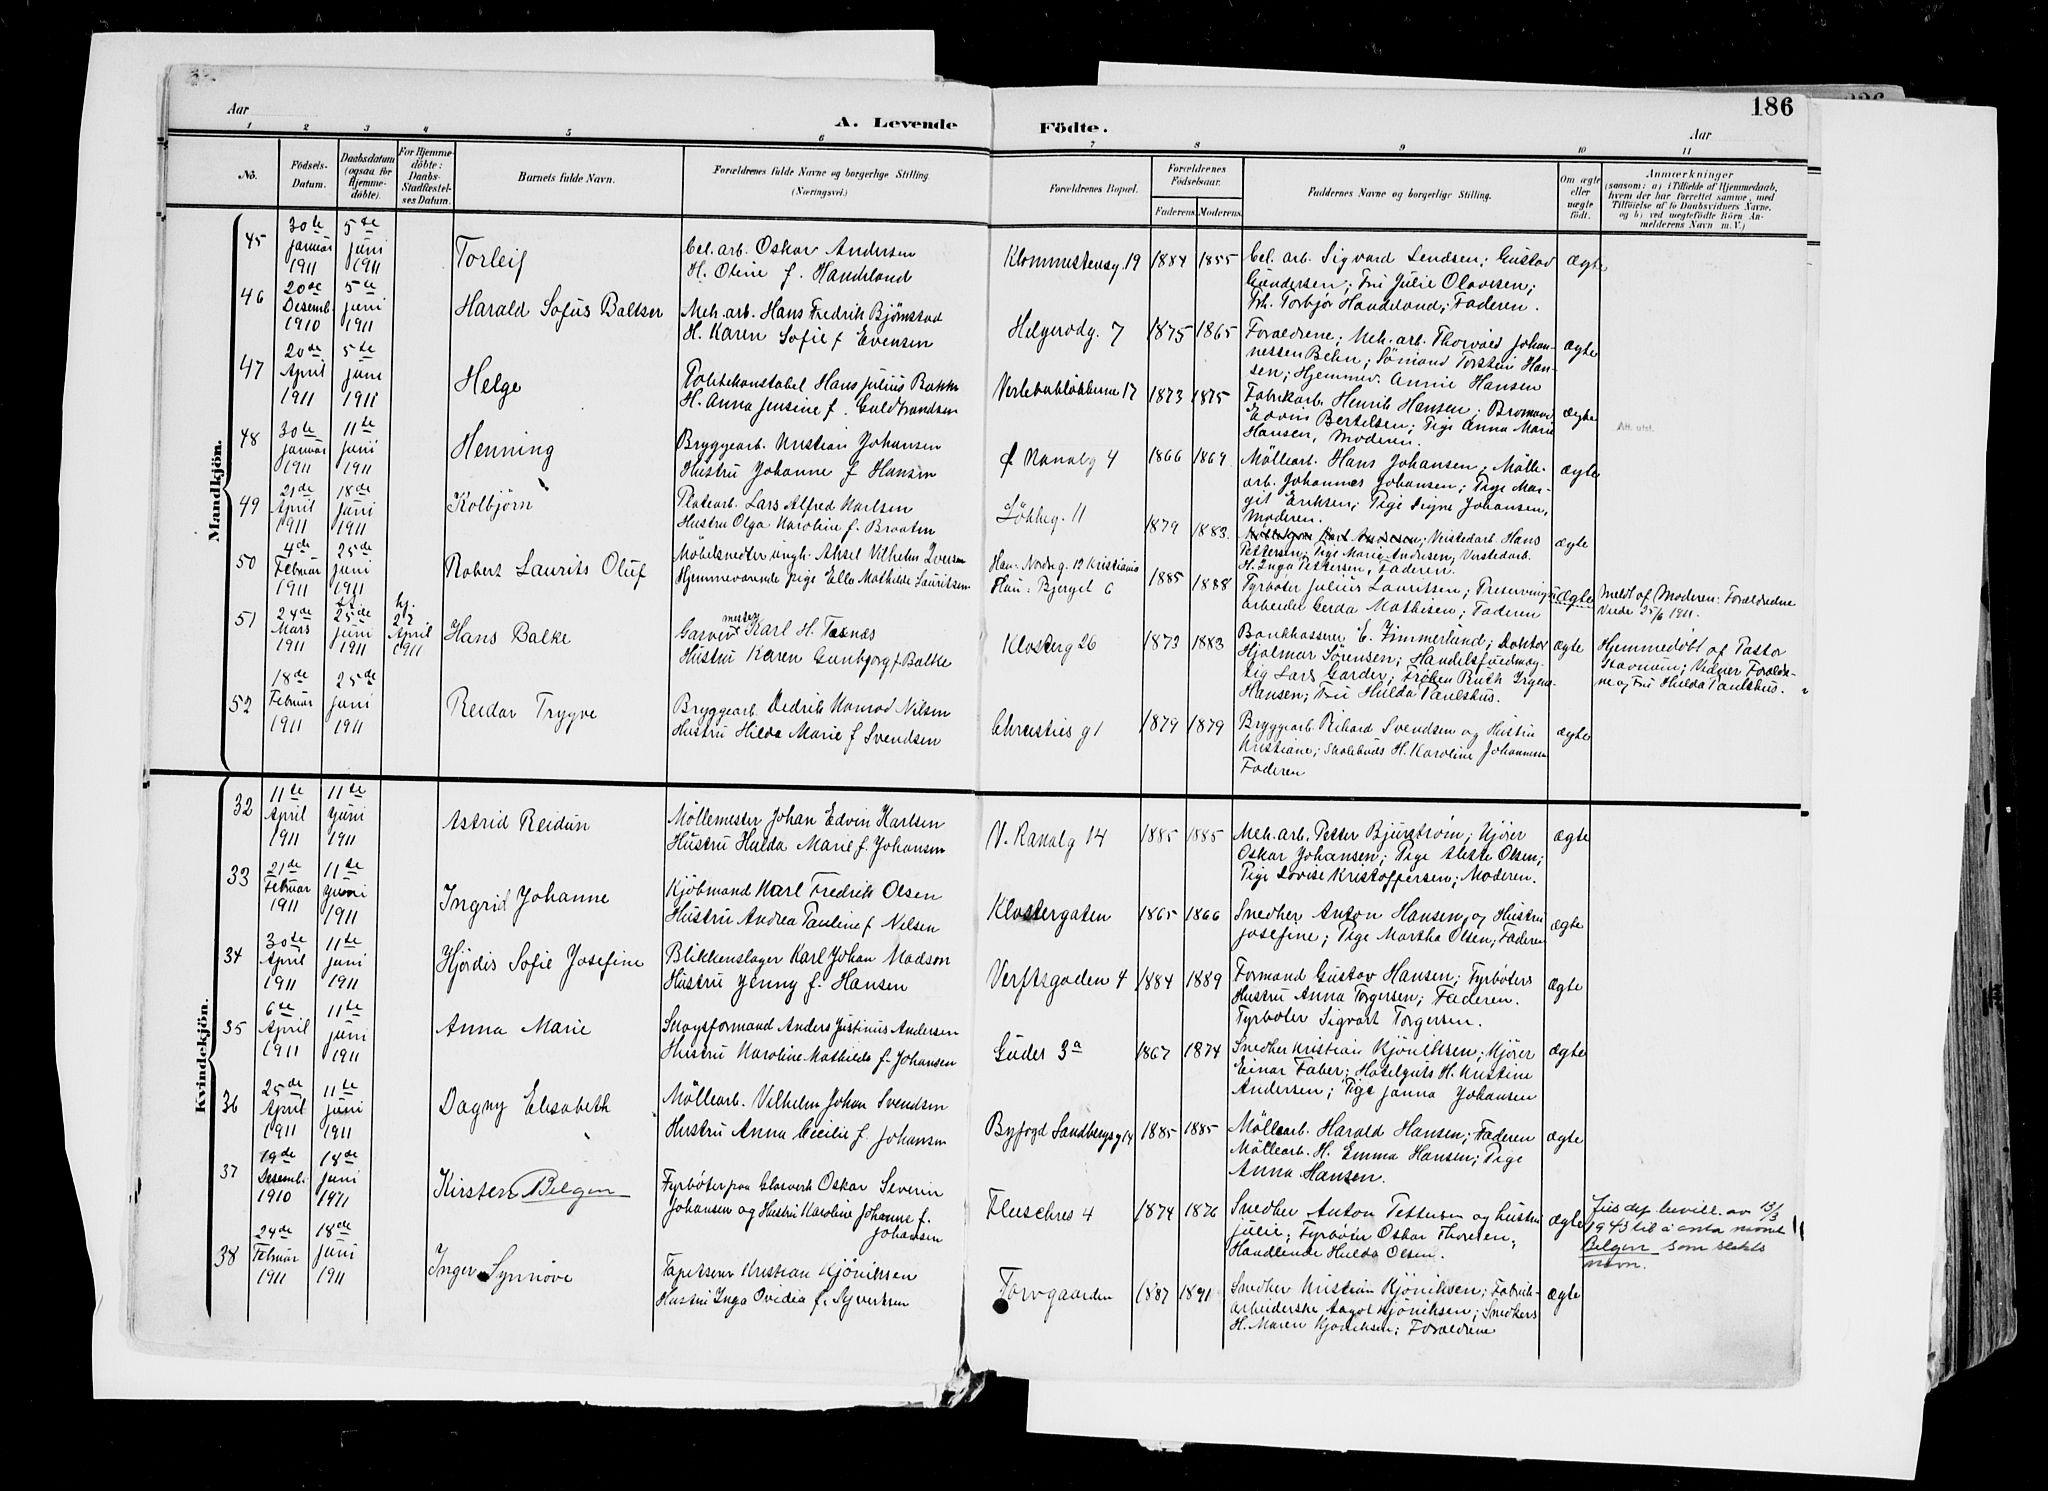 186
Aar
A. Levende Födte.
Aar
1 2 3 4 5 6 7 8 9 10 11
No.
Födsels-
Datum.
Daabsdatum
(ogsaa for
Hjemme-
döbte).
For Hjemme-
döbte:
Daabs-
Stadfæstel-
ses Datum.
Barnets fulde Navn.
Forældrenes fulde Navne og borgerlige Stilling.
(Næringsvei.)
Forældrenes Bopæl.
Forældrenes
Födselsaar.
Faderens. Moderens.
Faddernes Navne og borgerlige Stilling.
Om ægte
eller
uægte
födt.
Anmærkninger
(saasom: a) i Tilfælde af Hjemmedaab,
hvem der har forrettet samme, med
Tilföielse af to Daabsvidners Navne,
og b) ved uægtefödte Börn An-
melderens Navn m. V.)
Mandkjön.
45
30te Januar 1911
5te Juni 1911
Torleif
Cel. arb. Oskar Andersen
H. Otine f. Handeland
19 1884 1855
Cel. arb. Sigvard ; Gustav
Gundersen; Fru Julie Olavesen;
Frk. Torbjør Handeland; Faderen.
ægte
46
20de Desemb. 1910
5te Juni 1911
Harald Sofus Baltser
Mek. arb. Hans Fredrik Bjørnstad
H. Karen Sofie f Evensen
Helgerødg. 7 1875 1865
Forældrene; Mek. arb. Thorvald Johan-
nessen ; Sömand Torstein Han-
sen; Hjemmev. Annie Hansen
ægte
47
20de April 1911
5te Juni 1911
Helge
Politikonstabel Hans Julius Bakke
H. Anna Jensine f. Guldbrandsen
17 1873 1875
Fabrikarb. Henrik Hansen;
Edvin Bertelsen; Pige Anna Marie
Hansen, Moderen.
ægte
Att. utst.
48
30te Januar 1911
11te Juni 1911
Henning
Bryggearb. Kristian Johansen
Hustru Johanne f Hansen
Ø Kanalg 4 1866 1869
Möllearb. Hans Johansen; Mölle-
arb. Johannes Johansen; Pige Mar-
git Eriksen; Pige Signe Johansen,
Moderen.
ægte
49
21de April 1911
18de Juni 1911
Kolbjörn
Platearb. Lars Alfred Karlsen
Hustru Olga Karoline f. Braaten
Løkkeg. 11 1879 1883
Verkstedarb. Hans
Pettersen; Pige Marie Andresen, Verkstedarb.
H. Inga Pettersen, Faderen.
ægte
50
4de Februar 1911
25de Juni 1911
Robert Laurits Oluf
Möbelsnedker ungk. Aksel Vilhelm Iversen
Hjemmeværende pige Ella Mathilde Lauritsen
Han: Nordreg. 12 Kristiania
Hun: Bjerget 6
1885 1888
Fyrböter Julius Lauritsen; Preservings
arbeider Gerda Mathisen; Faderen
uægte
Meldt af Moderen. Forældrene
Viede 25/6 1911.
51
24de Mars 1911
25de Juni 1911
hj. 27 April 1911
Hans Balke
Garvermester Karl H. Tasnæs
Hustru Karen Gunbjorg f Balke
Klosterg 26 1873 1883
Bankkasserer E. Zimmerland; Doktor
Hjalmar Sörensen; Handelsfuldmæg-
tig Lars Garder; Fröken Ruth
Hansen; Fru Hilda Paulshus.
ægte
Hjemmedøbt af Pastor
Stavnum; Vidner Forældre-
ne og Fru Hilda Paulshus.
52
18de Februar 1911
25de Juni 1911
Reidar Trygve
Bryggearb. Didrik Konrad Nilsen
Hustru Hilda Marie f Svendsen
Christies g 1 1879 1879
Bryggearb. Rikard Svendsen og Hustru
Kristiane; H. Karoline Johannesen
Faderen
ægte
Kvindekjön.
32
11te April 1911
11te Juni 1911
Astrid Reidun
Möllemester Johan Edvin Karlsen
Hustru Hulda Marie f Johansen
V. Kanalg 14 1885 1885
Mek. arb. Petter Bjurström; Kjörer
Oskar Johansen; Pige Olsen;
Pige Lovise Kristoffersen; Moderen.
ægte
33
21de Februar 1911
11te Juni 1911
Ingrid Johanne
Kjöbmand Karl Fredrik Olsen
Hustru Andrea Pauline f Nilsen
Klostergaten 1865 1866
Snedker Anton Hansen og Hustru
Josefine; Pige Martha Olsen; Faderen
ægte
34
30te April 1911
11te Juni 1911
Hjördis Sofie Josefine
Blikkenslager Karl Johan Madson
Hustru Jenny f. Hansen
Verftsgaden 4 1884 1889
Formand Gustav Hansen; Fyrböters
Hustru Anna Torgersen; Faderen.
Fyrböter Sigvart Torgersen.
ægte
35
6te April 1911
11te Juni 1911
Anna Marie
Skogsformand Anders Justinus Andersen
Hustru Karoline Mathilde f. Johansen
Gudes 3a 1867 1874
Snedker Kristian Kjöniksen; Kjörer
Einar Faber; H. Kristine
Andersen; Pige Janna Johansen
ægte
36
25de April 1911
11te Juni 1911
Dagny Elisabeth
Möllearb. Vilhelm Johan Svendsen
Hustru Anna Cecilie f. Johansen
Byfogd Sandbergsg 14 1885 1885
Möllearb. Harald Hansen; Faderen
Möllearb. H. Emma Hansen; Pige
Anna Hansen.
ægte
37
19de Desemb. 1910
18de Juni 1911
Kirsten Belgen
Fyrböter paa Glasverk Oskar Severin
Johansen og Hustru Karoline Johanne f.
Johansen
Flueschres 4 1874 1876
Snedker Anton Pettersen og hustru
Julie; Fyrböter Oskar Thoresen;
Handlende Hilda Olsen.
ægte
Jus dep bevill. av 13/3
1943 til å anta navnet
Belgen som slekts
navn.
38
24de Februar 1911
18de Juni 1911
Inger Synnöve
Tapetserer Kristian Kjöniksen
Hustru Inga Ovidia f. Syvertsen
Torvgaarden 1887 1891
Snedker Kristian Kjöniksen; Fabrik-
arbeiderske Aagot Kjöniksen; Snedkers
H. Maren Kjöniksen; Forældrene
ægte